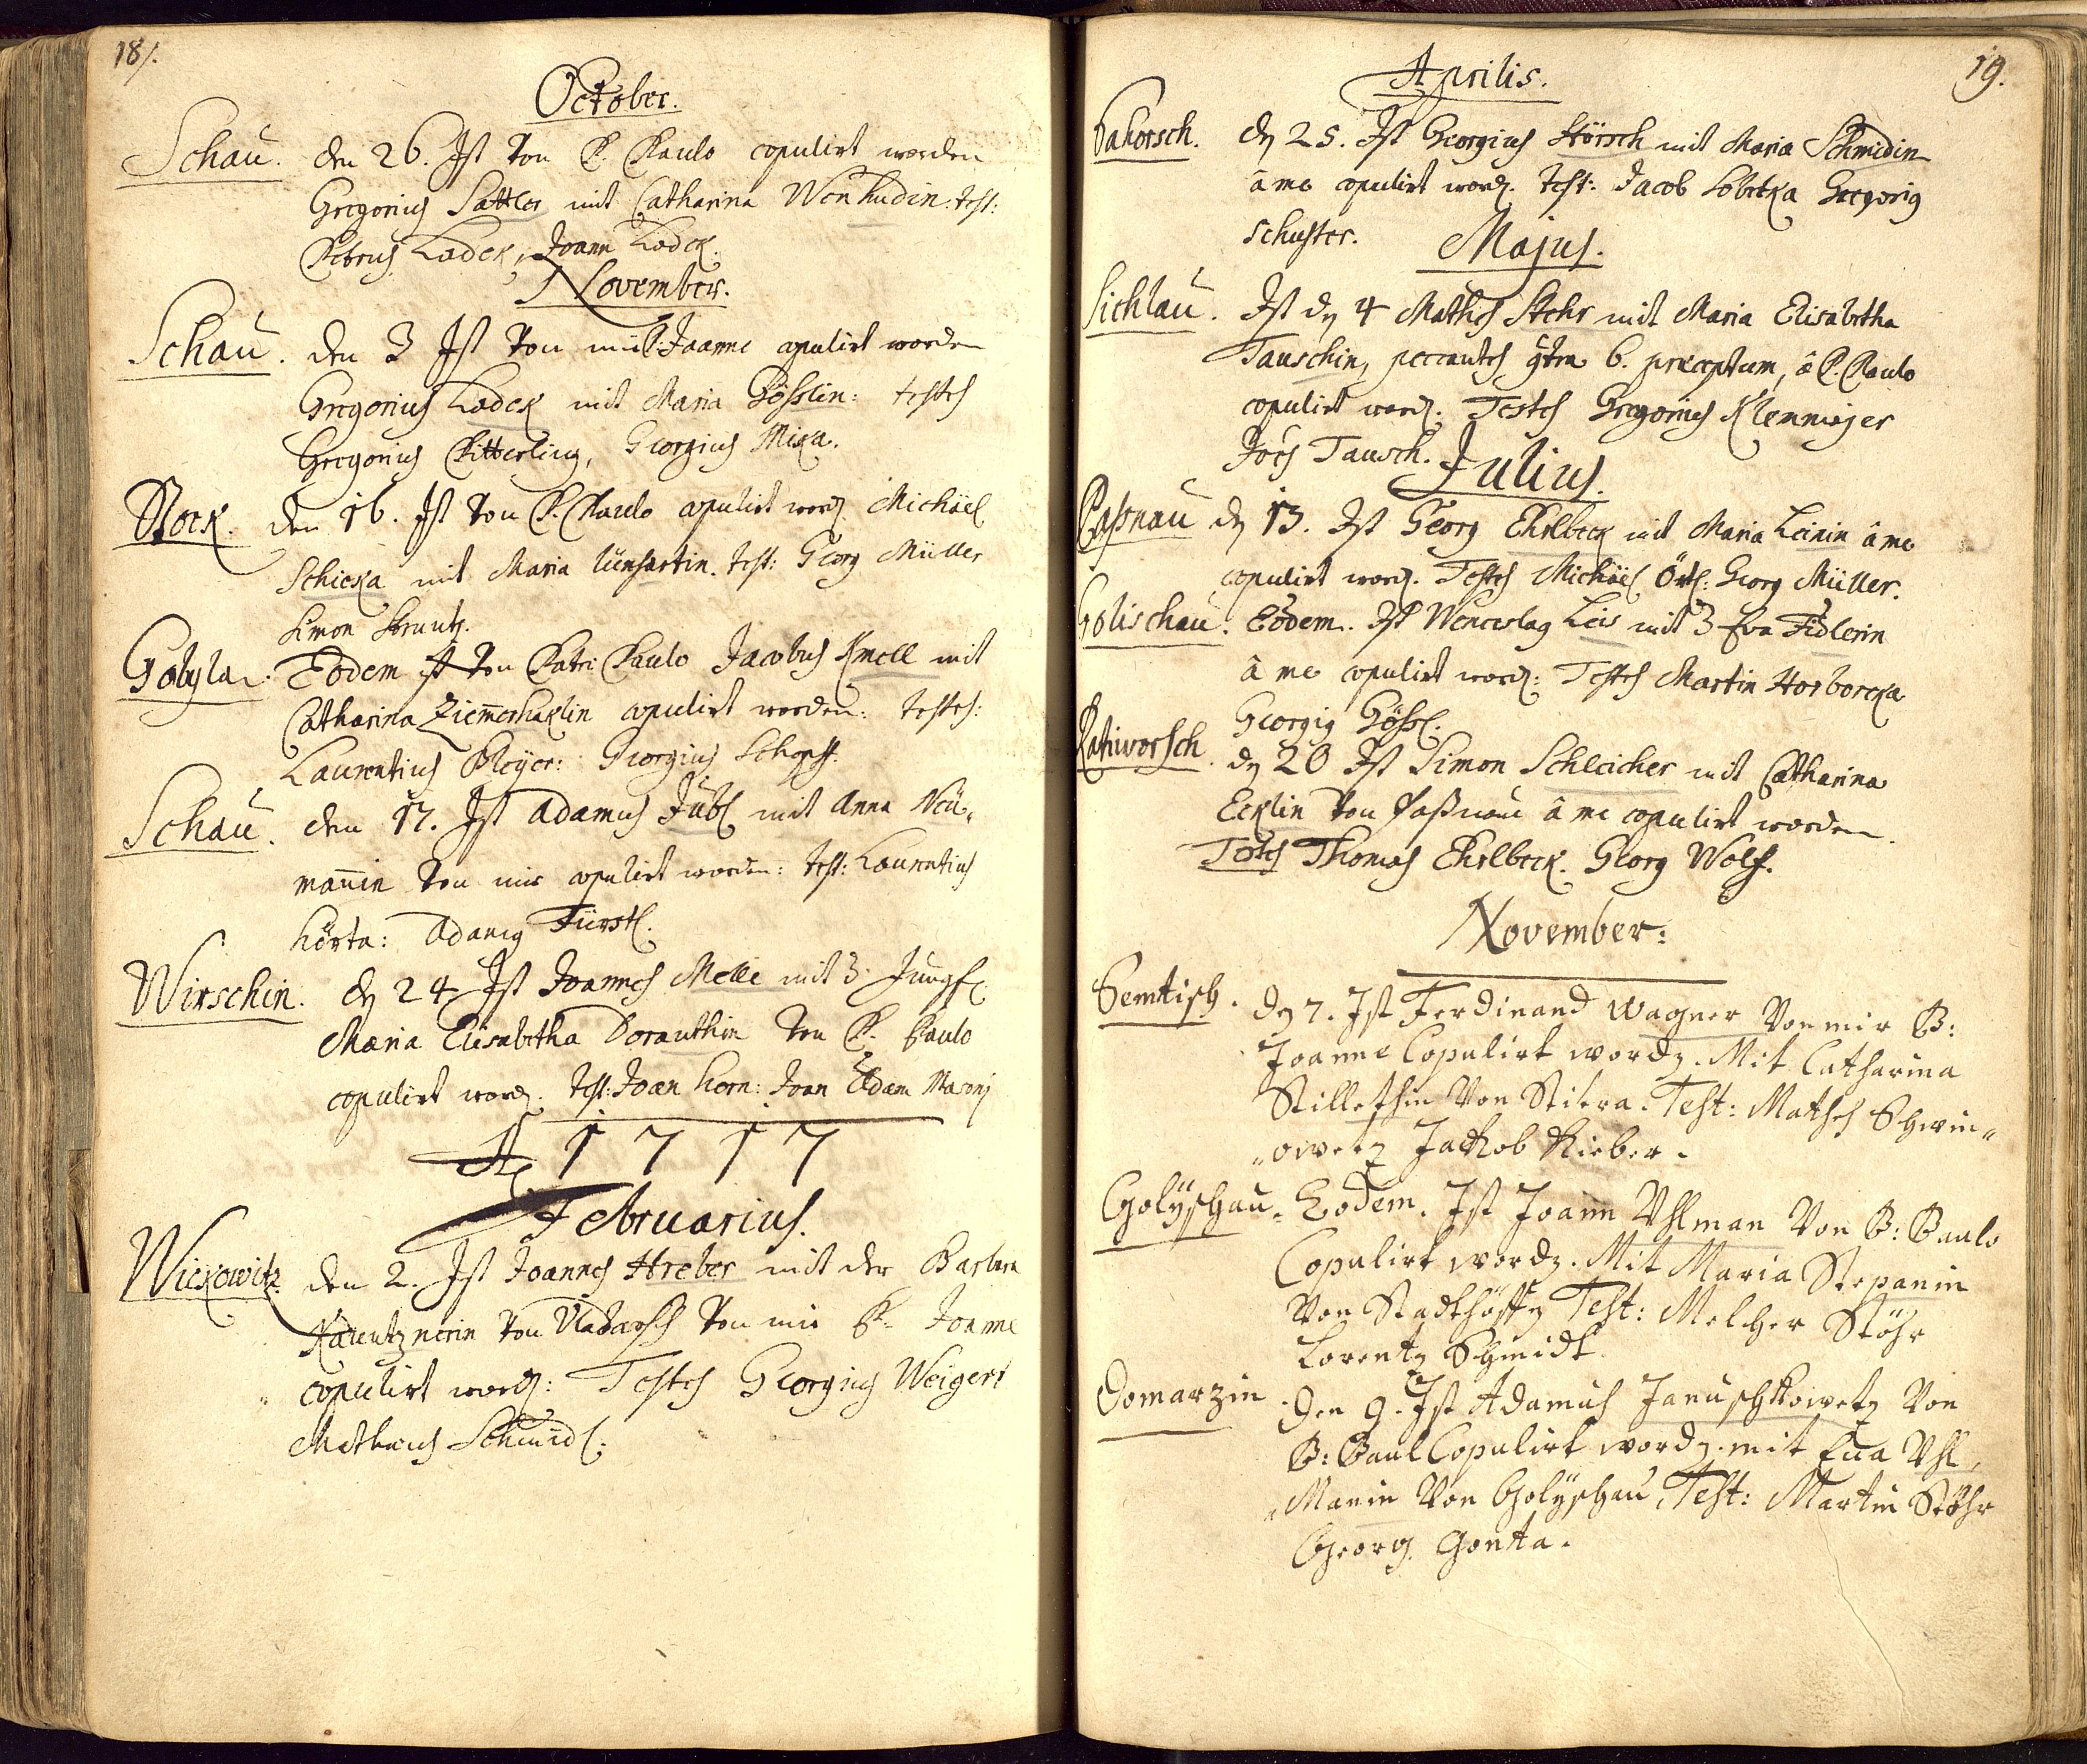 18/.
October.
Schau. den 26. Ist von P. Paulo copulirt worden
Gregorius Sattler mit Catharina Wenhudin: test:
Petrus Ladek, Joann Ladek.
November.
Schau. den 3 Ist von mir P. Joanne copulirt worden
Gregorius Ladek mit Maria Gösslin: testes
Gregorius Pitterling, Georgius Mixa.
Stock. den 16. Ist von P. Paulo copulirt word. Michael
Schicka mit Maria test: Georg Müller
Simon
Gobyla. Eodem ist von Patri Paulo Jacobus Knoll mit
Catharina copulirt worden: testes:
Laurentius Georgius Schopf.
Schau. den 17. Ist Adamus Jübl mit Anna Neü-
mannin von mir copulirt worden: test: Laurentius
Hörta: Adamus Fürstl.
Wirschin. den 24 Ist Joannes Melle mit Jungf.
Maria Elisabetha Dorauthin von P. Paulo
copulirt word. test: Joan Horn: Joan Adam
Ao 1717
Februarius.
Wickowitz. den 2. Ist Joannes Hreber mit der Barbara
von Vladarsch von mir P. Joanne
copulirt word: Testes Georgius Weigert
Mathaeus Schmidl.
19.
Aprilis.
Pakorsch. den 25. Ist Georgius Störsch mit Maria Schmidin
â me copulirt word. test: Jacob Sobotka Gregorius
Schuster.
Majus.
Sichlau. Ist den 4 Mathes Stehr mit Maria Elisabetha
Tauschin, peccantes 6. praeceptum, â P. Paulo
copulirt word. Testes Gregorius Klenmajer
Tausch.
Julius.
Paßnau den 13. Ist Georg Ehrlbeck mit Maria Leinin â me
copulirt word. Testes Michael Örtl. Georg Müller.
Golischau. Eodem. Ist Wenceslaus Leis mit Eva Fidlerin
â me copulirt word: Testes Martin Horborcka
Georgius Gössl.
Ratiworsch. den 20 Ist Simon Schleicher mit Catharina
Ecklin von Paßnau â me copulirt worden.
Testes Thomas Ehrlbeck. Georg Wolf.
November:
Semtisch. den 7. Ist Ferdinand Wagner Von mir P:
Joanne Copulirt worden. Mit Catharina
Von Stitra. Test: Mathes Schwin-
-owetz Jackob Rieber.
Golÿschau. Eodem. Ist Joann Vhlman Von P: Paulo
Copulirt worden. Mit Maria Stepanin
Von Stadthöffen Test: Melcher Stöhr
Lorentz Schmidt.
Domarzin Den 9. Ist Adamus Januschkowetz Von
P: Paul Copulirt worden. mit Eua Vhl-
-Manin Von Golÿschau, Test: Martin Stöhr
Georg Gonta.